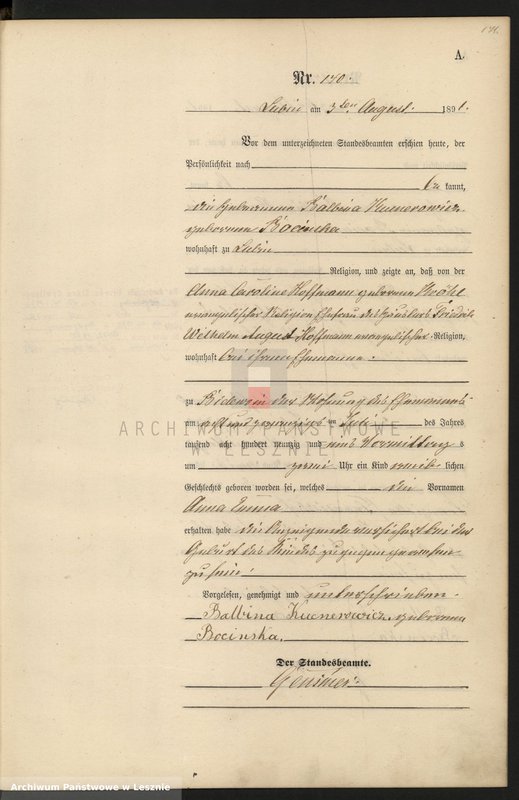 A.
Nr. 140.
Lubin am 3ten August 1891.
Vor dem unterzeichneten Standesbeamten erschien heute, der
Persönlichkeit nach
be kannt,
die Hebamme Balbina Kucnerowicz
geborene Bocinska
wohnhaft zu Lubin
Religion, und zeigte an, daß von der
Anna Caroline Hoffmann geborene
evangelischer Religion Ehefrau des Häuslers Friedrich
Wilhelm August Hoffmann evangelischer Religion,
wohnhaft bei ihrem Ehemanne
zu in der Wohnung des Ehemannes
am acht und zwanzigsten Juli des Jahres
tausend acht hundert neunzig und eins Vormittags
um zwei Uhr ein Kind weib lichen
Geschlechts geboren worden sei, welches die Vornamen
Anna Emma
erhalten habe die Anzeigende versichert bei der
Geburt des Kindes zugegen gewesen
zu sein.
Vorgelesen, genehmigt und unterschrieben.
Balbina Kucnerowicz geborene
Bocinska.
Der Standesbeamte.
ARCHIWUM PAŃSTWOWE
W LESZNIE
Archiwum Państwowe w Lesznie